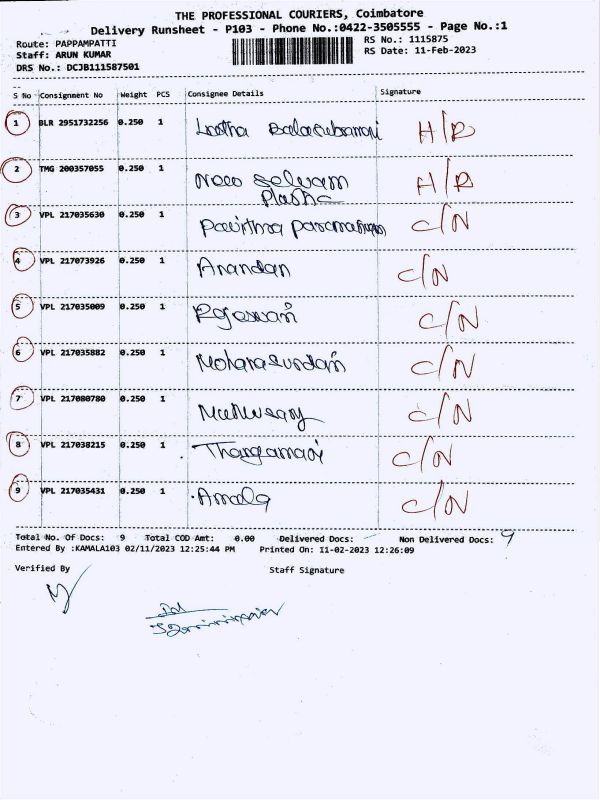 THE PROFESSIONAL COURIERS, Coimbatore
Delivery Runsheet - P103 - Phone No.:0422-3505555 - Page No.:1
Route: PAPPAMPATTI
RS No.: 1115875
Staff: ARUN KUMAR
RS Date: 11-Feb-2023
DRS No.: DCJB111587501
S No Consignment No Weight PCS Consignee Details Signature
1 BLR 2951732256 0.250 1 H/R
2 TMG 200357055 0.250 1 New Selvam H/R
Plastic
3 VPL 217035630 0.250 1 C/N
4 VPL 217073926 0.250 1 Anandan C/N
5 VPL 217035009 0.250 1 C/N
6 VPL 217035882 0.250 1 C/N
7 VPL 217080780 0.250 1 C/N
8 VPL 217038215 0.250 1 Thangamani C/N
9 VPL 217035431 0.250 1 Amala C/N
Total No. Of Docs: 9 Total COD Amt: 0.00 Delivered Docs: Non Delivered Docs: 9
Entered By :KAMALA103 02/11/2023 12:25:44 PM Printed On: 11-02-2023 12:26:09
Verified By Staff Signature